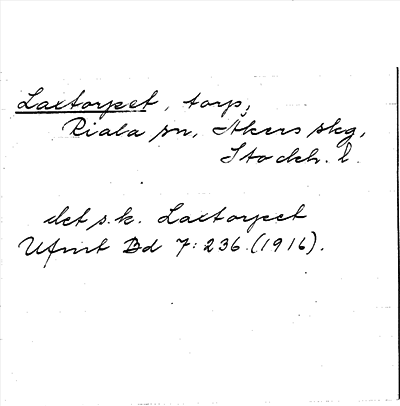 Laxtorpet, torp,
Riala sn, Åkers skg,
Stockh. l.
det s.k. Laxtorpet
Ufmt Bd 7:236.(1916).